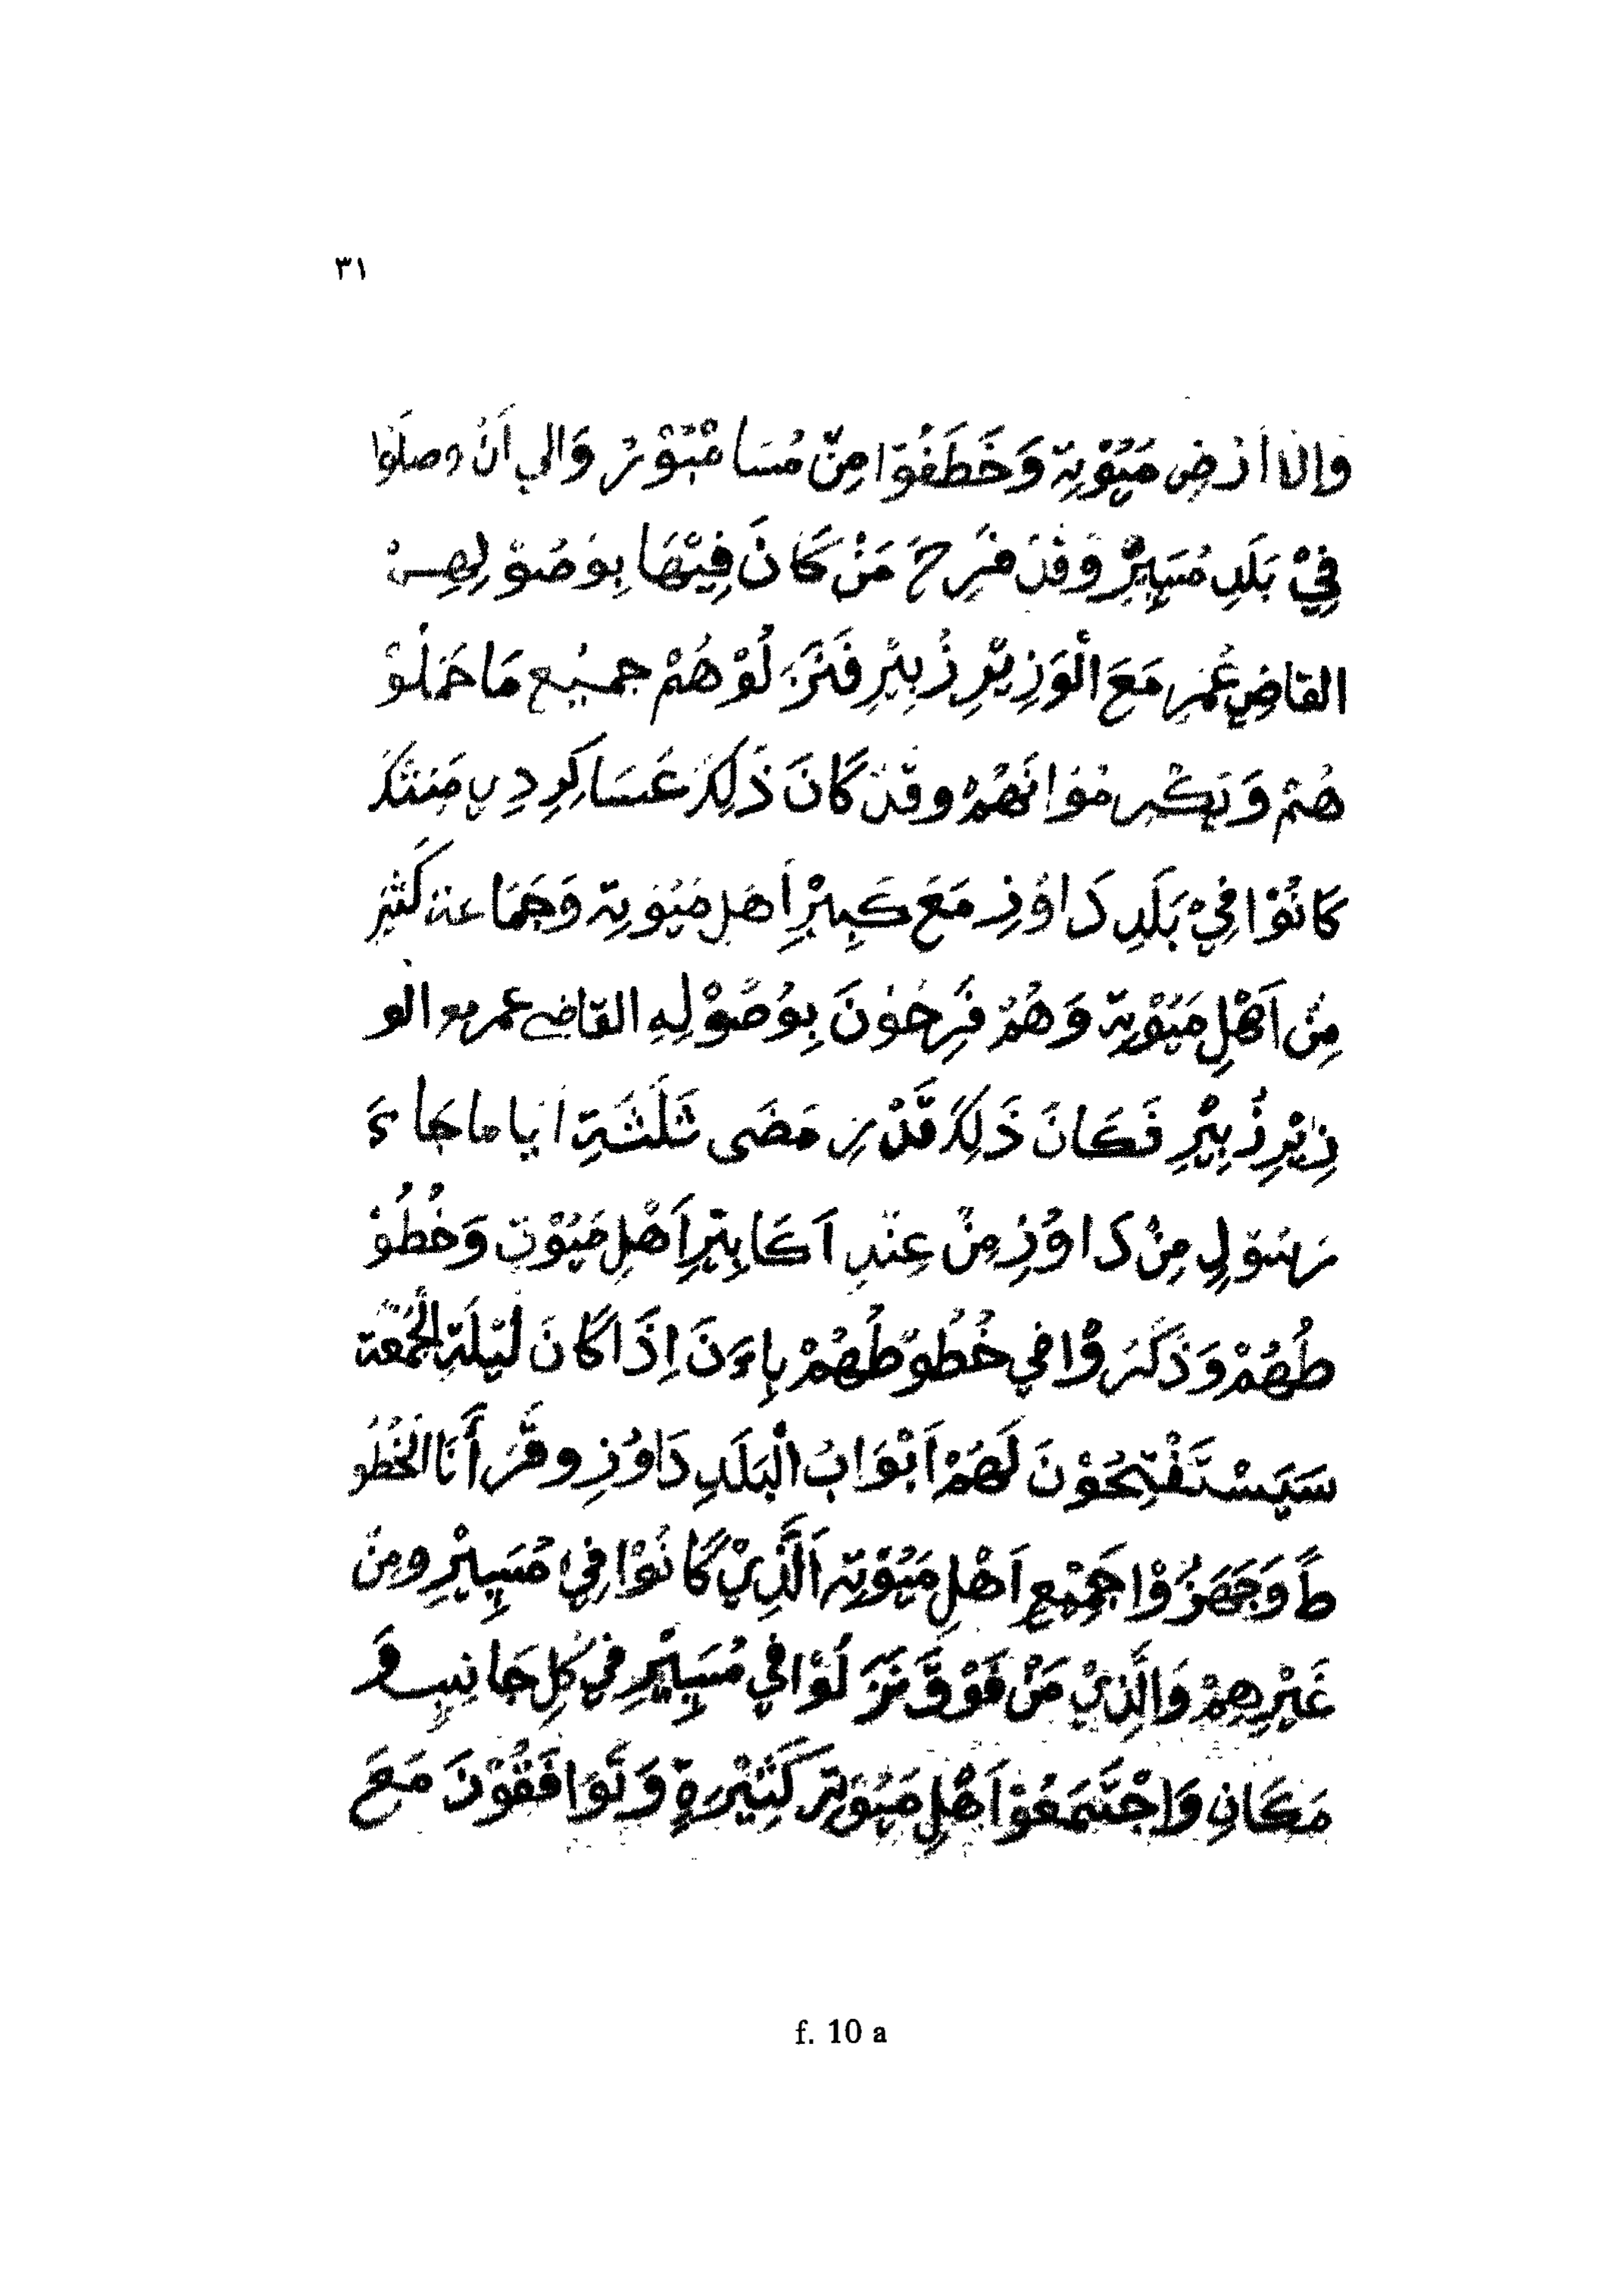 ٣١
وَاِلاَ اَرْضِ مَيُوْتِهِ وَخَطَفُوْا مِنْ مُسَا مْبُوْرُ وَالِي اَنْ وصلَوْا
فِيْ بَلَدِ مُسَبِيْرٌ وَقَدْ فَرِحَ مَنْ كَانَ فِيْهَا بِوُصُوْ لِهِمْ
القاضِي عُمَرِ مَعَ الْوَزِيْرِ زُبِيْرِ فَنَزَ لُوْ هُمْ جميْع مَا حَمَلُوْ
هُمْ وَيَكْرِ مُوْا نَهُمْ وقَدْ كَانَ ذَلِكَ عَسَاكِرِ دِي
كَانُوْا فِيْ بَلَدِ دَاوُزِ مَعَ كَبِيْرِ اَهْلِ مَيُوْتِهِ وَجَمَاعة كَثِيْرِ
مِنْ اَهْلِ مَيُوْتِهِ وَهُمْ فَرِحُوْنَ بِوُصُوْلِهِ القاضي عمر مع الو
زِيْرِ زُبِيْرِ فَكَانَ ذَلِكَ قَدْرِ مَضَى ثَلَثَةِ اَياما جَاءَ
رَسُوْلِ مِنْ دَاوُزِ مِنْ عِنْدِ اَكَابِيْرِ اَهْلِ مَيُوْتِ وَخُطُوْ
طُهُمْ وَذَكَرُوْا فِي خُطُوطُهُمْ بِاءَنَ اِذَا كَانَ لَيْلَةِ الْجُمْعَة
سَيَسْتَفْتِحُوْنَ لَهُمْ اَبْوَابُ الْبَلَدِ دَاوُزِ وقَرَأْنَا الْخُطُو
طَ وَجَهَزُوْا جَمِيْعِ اَهْلِ مَيُوْتِهِ اَلَّذِيْ كَانُوْا فِيْ مُسَبِيْرِ ومِنْ
غَيْرِهِمْ وَالَّذِيْ مَنْ فَوْقَ نَزَ لُوْا فِي مُسَبِيْرِ فِيْ كُلِ جَانِبِ وَ
مَكَانِ وَاجْتَمَعُوْا اَهْلِ مَيُوْتِهِ كَثِيْرَةِ وَتَوَافَقُوْنَ مَعَ
f. 10 a